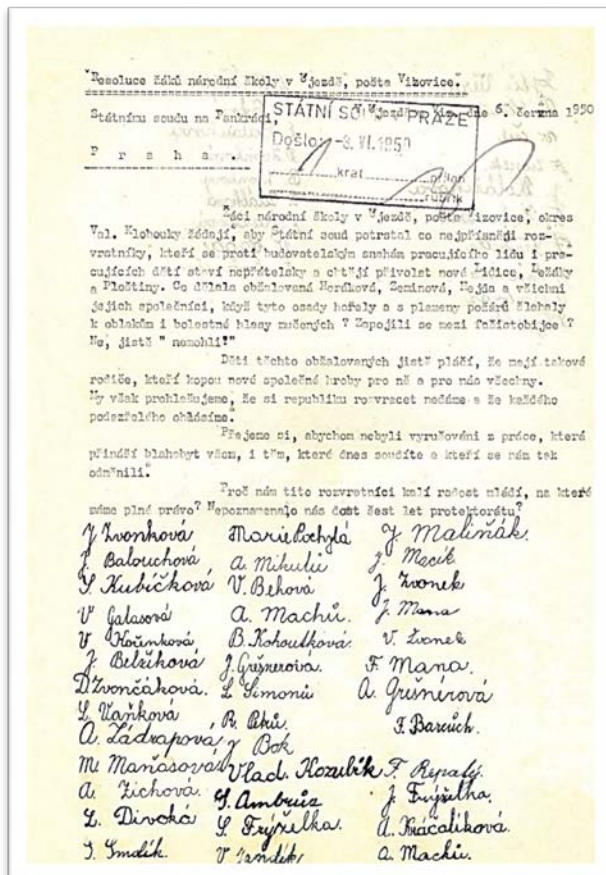 "Resoluce žáků národní školy v Újezdě, pošta Vizovice."
Státnímu soudu na Pankráci, V Újezdě, Viz. dne 6. června 1950
P r a h a .
STÁTNÍ SOUD V PRAZE
Došlo: -8. VI. 1950
krat příloh
rubrik
Žáci národní školy v Újezdě, pošta Vizovice, okres
Val. Klobouky žádají, aby Státní soud potrstal co nejpřísněji roz-
vratníky, kteří se proti budovatelským snahám pracujícího lidu i pra-
cujících dětí staví nepřátelsky a chtějí přivolat nové Lidice, Ležáky
a Ploštiny. Co dělala obžalovaná Horáková, Zeminová, Nejda a všichni
jejich společníci, když tyto osady hořely a s plameny požárů šlehaly
k oblakům i bolestné hlasy mučených ? Zapojili se mezi fašistobijce ?
Ne, jistě " nemohli!"
Děti těchto obžalovaných jistě pláčí, že mají takové
rodiče, kteří kopou nové společné hroby pro ně a pro nás všechny.
My však prohlašujeme, že si republiku rozvracet nedáme a že každého
podezřelého ohlásíme.
Přejeme si, abychom nebyli vyrušováni z práce, která
přináší blahobyt všem, i těm, které dnes soudíte a kteří se nám tak
odměnili.
Proč nám tito rozvratníci kalí radost mládí, na které
máme plné právo? Nepoznamenalo nás dost šest let protektorátu?
J Zvonková Marie Pochylá J. Maliňák.
J. Balouchová A. Mikulů J. Macík
S. Kubíčková V. Behová J. Zvonek
V Galasová A. Machů. J. Mana
V Kořenková B. Kohoutková. V. Zvonek
J. Belžíková J. Grešnerová. F. Mana.
D. Zvončáková. L. Šimonů A. Grešnerová
L. Vaňková R. Petrů. F. Barcuch.
A. Zádrapová J Bok
M. Maňasová Vlad. Kozubík F. Repatý.
A. Zichová. S. Ambruz J. Frýželka.
L. Divoká S. Frýželka. A. Kráčalíková.
S. Smolík. V Jandík A. Machů.